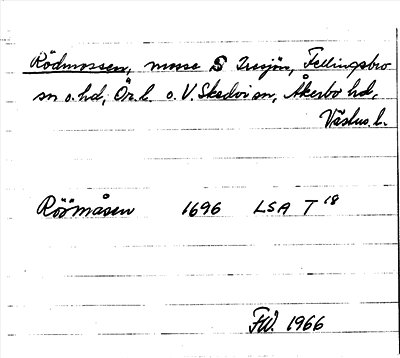 Rödmossen, mosse S Iresjön, Fellingsbro
sn o. hd, Ör. l. o. V. Skedvi sn, Åkerbo hd,
Västm. l.
Röömåsen 1696 LSA T 18
FW. 1966